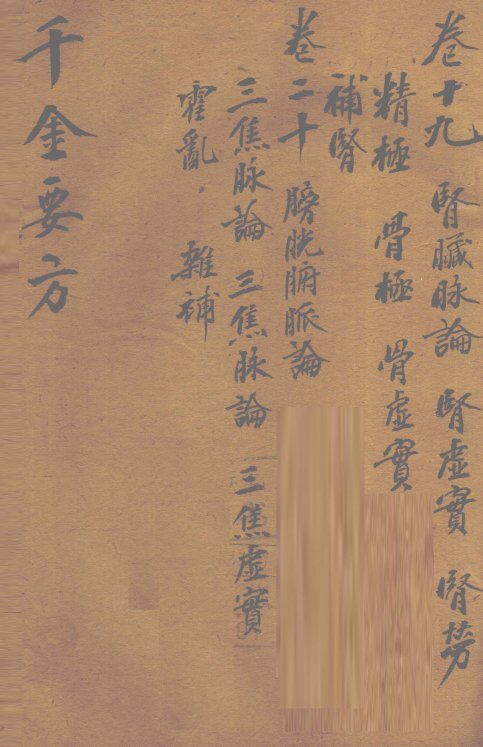 卷十九　腎臟脉論　腎虛實　腎勞
精極　骨極　骨虛實
補腎
卷二十　膀胱腑脈論
三焦脉論　三焦脉論　三焦虛實
霍亂　雜補
千金要方